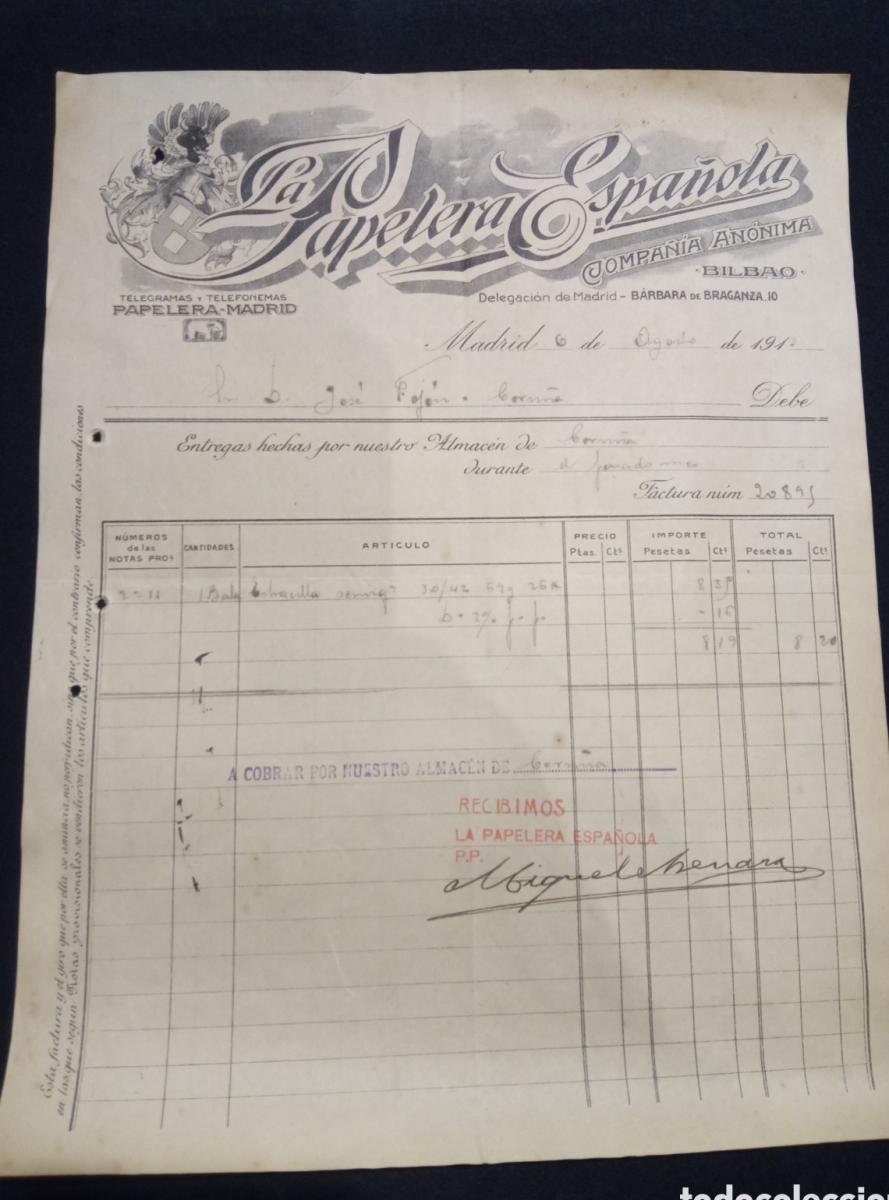 La Papelera Española
COMPAÑÍA ANÓNIMA
· BILBAO ·
TELEGRAMAS Y TELEFONEMAS
PAPELERA-MADRID
Delegación de Madrid - BÁRBARA DE BRAGANZA, 10
Madrid 6 de Agosto de 191
Sr. D. José Fojón - Coruña Debe
Entregas hechas por nuestro Almacén de Coruña
durante el pasado mes
Factura núm 20895
NÚMEROS de las NOTAS PROˢ CANTIDADES ARTICULO PRECIO Ptas. Ctˢ IMPORTE Pesetas Ctˢ TOTAL Pesetas Ctˢ
1 Bala 30/42 8 35
2% p. p. - 16
8 19 8 20
A COBRAR POR NUESTRO ALMACÉN DE Coruña
RECIBIMOS
LA PAPELERA ESPAÑOLA
P.P.
Miguel
Esta factura y el giro que por ella se
en las que según Notas provisionales se vendieron los artículos que comprende.
todocoleccion